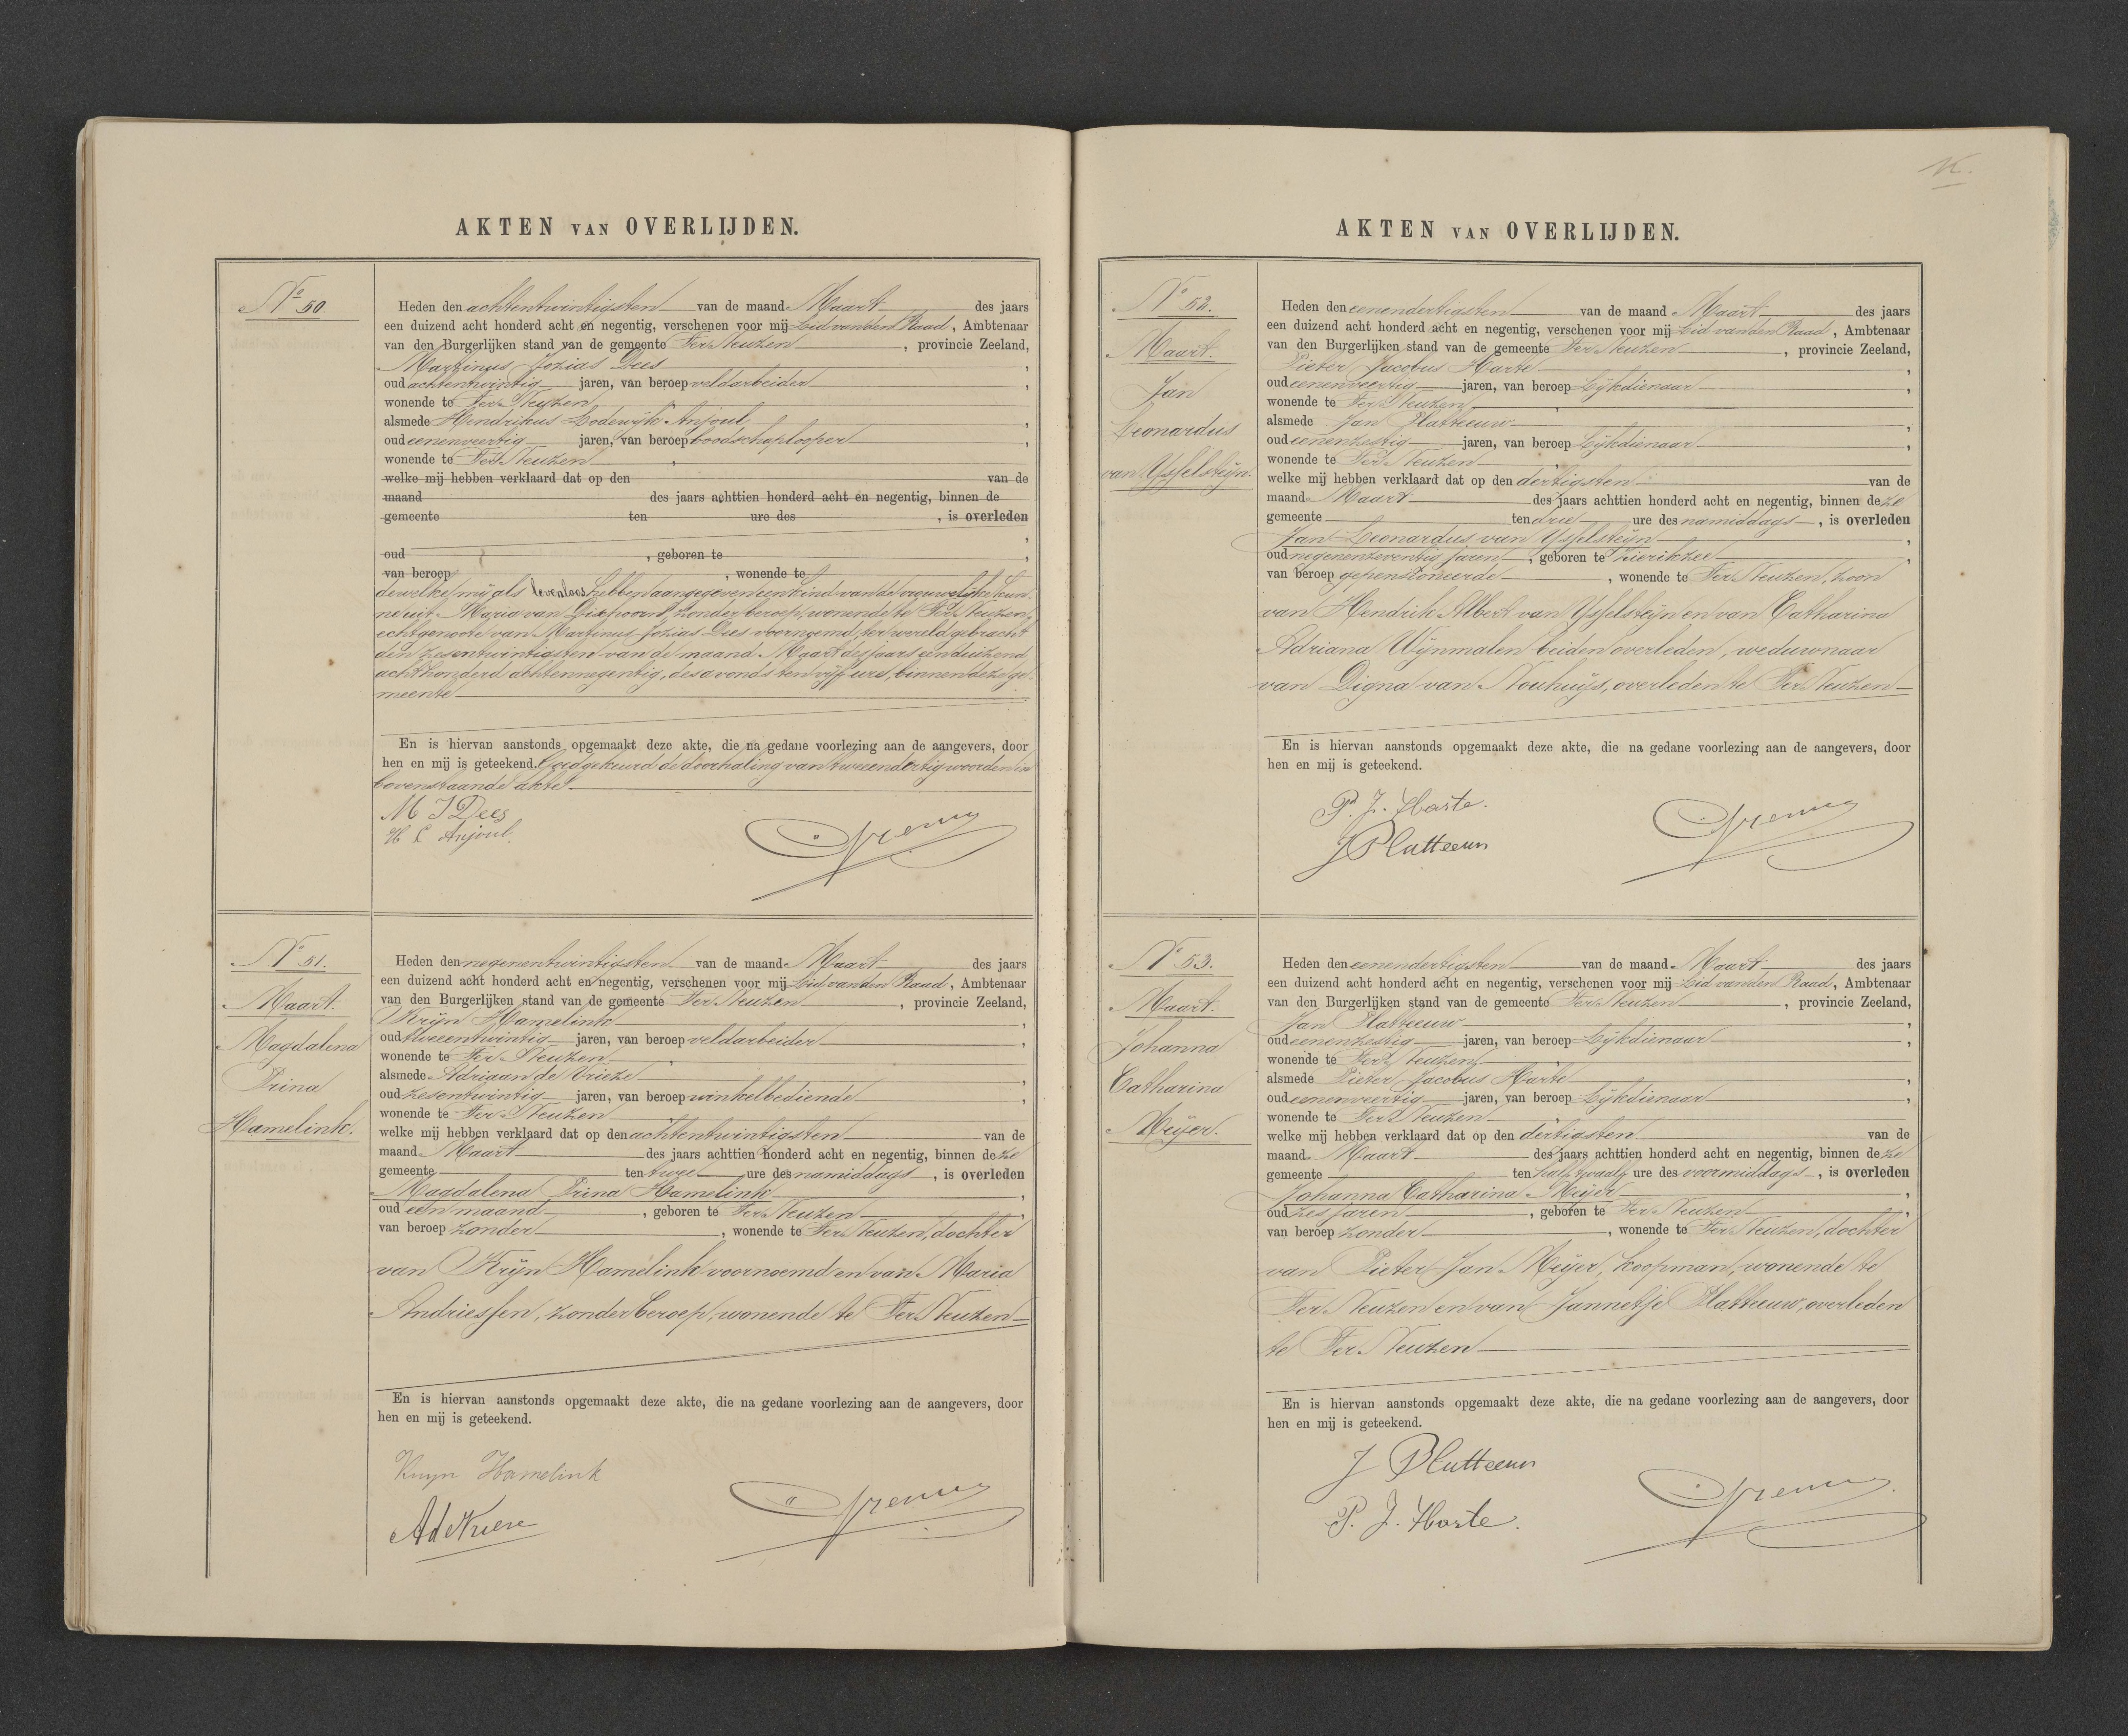 AKTEN VAN OVERLIJDEN.
No 50.
Heden den achtentwintigsten van de maand Maart des jaars
een duizend acht honderd acht en negentig, verschenen voor mij Lid van den Raad, Ambtenaar
van den Burgerlijken stand van de gemeente Ter Neuzen, provincie Zeeland,
Martinus Jozias Dees,
oud achtentwintig jaren, van beroep veldarbeider,
wonende te Ter Neuzen,
alsmede Hendrikus Lodewijk Anjoul,
oud eenenveertig jaren, van beroep boodschaplooper,
wonende te Ter Neuzen,
welke mij hebben verklaard dat op den van de
maand des jaars achttien honderd acht en negentig, binnen de
gemeente ten ure des , is overleden
,
oud , geboren te ,
van beroep , wonende te
dewelke mij als levenloos hebben aangegeven een kind van de vrouwelijke kun-
ne uit Maria van Dixhoorn, zonder beroep, wonende te Ter Neuzen,
echtgenoote van Martinus Jozias Dees voornoemd, ter wereld gebracht
den zesentwintigsten van de maand Maart des jaars eenduizend
achthonderd achtennegentig, des avonds ten vijf ure, binnen deze ge-
meente
En is hiervan aanstonds opgemaakt deze akte, die na gedane voorlezing aan de aangevers, door
hen en mij is geteekend. Goedgekeurd de doorhaling van tweeendertig woorden in
bovenstaande akte.
M J Dees
H L Anjoul.
No 51.
Maart.
Magdalena
Prina
Hamelink.
Heden den negenentwintigsten van de maand Maart des jaars
een duizend acht honderd acht en negentig, verschenen voor mij Lid van den Raad, Ambtenaar
van den Burgerlijken stand van de gemeente Ter Neuzen, provincie Zeeland,
Krijn Hamelink,
oud tweeentwintig jaren, van beroep veldarbeider,
wonende te Ter Neuzen,
alsmede Adriaan de Vrieze,
oud zesentwintig jaren, van beroep winkelbediende,
wonende te Ter Neuzen,
welke mij hebben verklaard dat op den achtentwintigsten van de
maand Maart des jaars achttien honderd acht en negentig, binnen deze
gemeente ten twee ure des namiddags, is overleden
Magdalena Prina Hamelink,
oud een maand, geboren te Ter Neuzen,
van beroep zonder, wonende te Ter Neuzen, dochter
van Krijn Hamelink voornoemd en van Maria
Andriessen, zonder beroep, wonende te Ter Neuzen
En is hiervan aanstonds opgemaakt deze akte, die na gedane voorlezing aan de aangevers, door
hen en mij is geteekend.
Krijn Hamelink
A de Vrieze
AKTEN VAN OVERLIJDEN.
No 52.
Maart.
Jan
Leonardus
van Ysselsteijn.
Heden den eenendertigsten van de maand Maart des jaars
een duizend acht honderd acht en negentig, verschenen voor mij Lid van den Raad, Ambtenaar
van den Burgerlijken stand van de gemeente Ter Neuzen, provincie Zeeland,
Pieter Jacobus Harte,
oud eenenveertig jaren, van beroep Lijkdienaar,
wonende te Ter Neuzen,
alsmede Jan Platteeuw,
oud eenenzestig jaren, van beroep Lijkdienaar,
wonende te Ter Neuzen,
welke mij hebben verklaard dat op den dertigsten van de
maand Maart des jaars achttien honderd acht en negentig, binnen deze
gemeente ten drie ure des namiddags, is overleden
Jan Leonardus van Ysselsteijn,
oud negenenzeventig jaren, geboren te Zierikzee,
van beroep gepensioneerde, wonende te Ter Neuzen, zoon
van Hendrik Albert van Ysselsteijn en van Catharina
Adriana Wijnmalen beiden overleden, weduwnaar
van Digna van Nouhuijs, overleden te Ter Neuzen
En is hiervan aanstonds opgemaakt deze akte, die na gedane voorlezing aan de aangevers, door
hen en mij is geteekend.
P. J. Harte.
J Platteeuw
No 53.
Maart.
Johanna
Catharina
Meijer.
Heden den eenendertigsten van de maand Maart des jaars
een duizend acht honderd acht en negentig, verschenen voor mij Lid van den Raad, Ambtenaar
van den Burgerlijken stand van de gemeente Ter Neuzen, provincie Zeeland,
Jan Platteeuw,
oud eenenzestig jaren, van beroep Lijkdienaar,
wonende te Ter Neuzen,
alsmede Pieter Jacobus Harte,
oud eenenveertig jaren, van beroep Lijkdienaar,
wonende te Ter Neuzen,
welke mij hebben verklaard dat op den dertigsten van de
maand Maart des jaars achttien honderd acht en negentig, binnen deze
gemeente ten half twaalf ure des voormiddags, is overleden
Johanna Catharina Meijer,
oud zes jaren, geboren te Ter Neuzen,
van beroep zonder, wonende te Ter Neuzen, dochter
van Pieter Jan Meijer, koopman, wonende te
Ter Neuzen en van Jannetje Platteeuw, overleden
te Ter Neuzen
En is hiervan aanstonds opgemaakt deze akte, die na gedane voorlezing aan de aangevers, door
hen en mij is geteekend.
J Platteeuw
P. J. Harte.